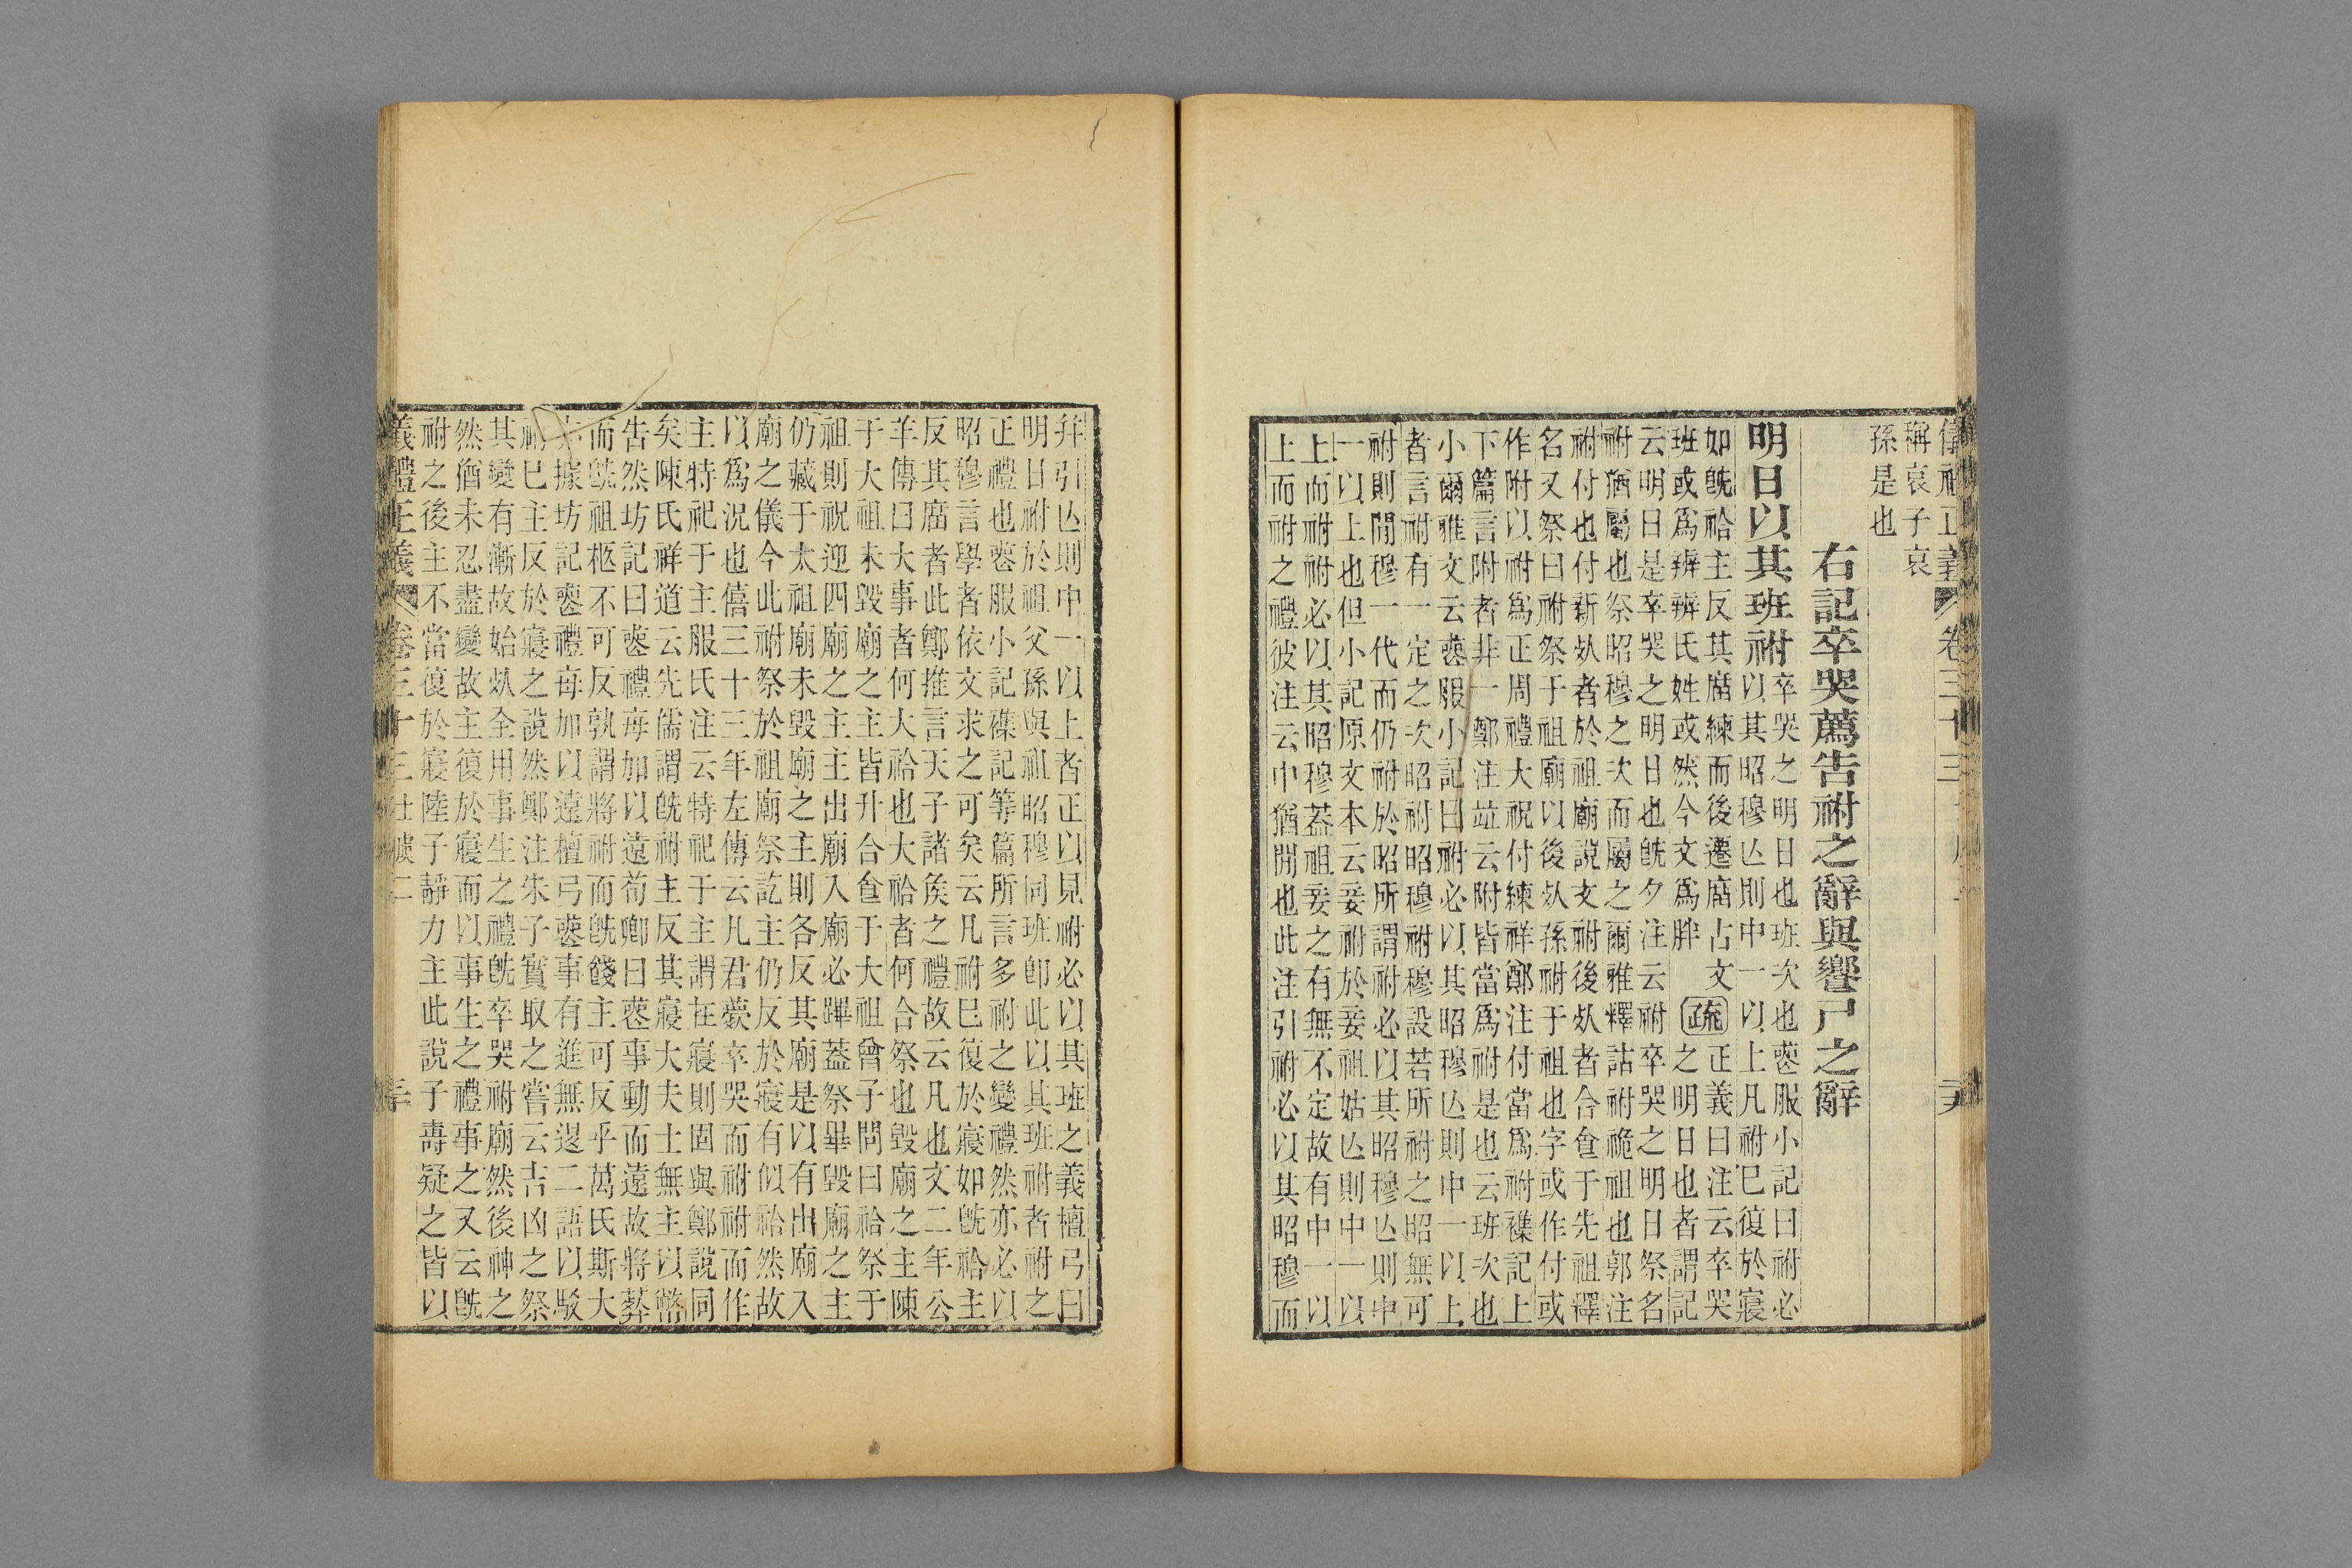 儀禮正義 卷三十三
稱哀子哀
孫是也
右記卒哭薦告祔之辭與饗尸之辭
明日以其班祔卒哭之明日也班次也喪服小記曰祔必
以其昭穆亾則中一以上凡祔已復於寢
如旣祫主反其廟練而後遷廟古文
班或爲辨辨氏姓或然今文爲胖 疏正義曰注云卒哭
之明日也者謂記
云明日是卒哭之明日也旣夕注云祔卒哭之明日祭名
祔猶屬也祭昭穆之次而屬之爾雅釋詁祔祪祖也郭注
祔付也付新死者於祖廟說文祔後死者合食于先祖釋
名又祭曰祔祭于祖廟以後死孫祔于祖也字或作付或
作附以祔爲正周禮大祝付練祥鄭注付當爲祔襍記上
下篇言附者非一鄭注竝云附皆當爲祔是也云班次也
小爾雅文云喪服小記曰祔必以其昭穆亾則中一以上
者言祔有一定之次昭祔昭穆祔穆設若所祔之昭無可
祔則閒穆一代而仍祔於昭所謂祔必以其昭穆亾則中
一以上也但小記原文本云妾祔於妾祖姑亾則中一以
上而祔祔必以其昭穆葢祖妾之有無不定故有中一以
上而祔之禮彼注云中猶閒也此注引祔必以其昭穆而
幷引亾則中一以上者正以見祔必以其班之義檀弓曰
明日祔於祖父孫與祖昭穆同班卽此以其班祔者祔之
正禮也喪服小記襍記等篇所言多祔之變禮然亦必以
昭穆言學者依文求之可矣云凡祔已復於寢如旣祫主
反其廟者此鄭推言天子諸矦之禮故云凡也文二年公
羊傳曰大事者何大祫也大祫者何合祭也毀廟之主陳
于大祖未毀廟之主皆升合食于大祖曾子問曰祫祭于
祖則祝迎四廟之主主出廟入廟必蹕葢祭畢毀廟之主
仍藏于太祖廟未毀廟之主則各反其廟是以有出廟入
廟之儀今此祔祭於祖廟祭訖主仍反於寢有似祫然故
以爲況也僖三十三年左傳云凡君薨卒哭而祔祔而作
主特祀于主服氏注云特祀于主謂在寢則固與鄭說同
矣陳氏祥道云先儒謂旣祔主反其寢大夫士無主以幣
告然坊記曰喪禮每加以遠荀卿曰喪事動而遠故將葬
而旣祖柩不可反孰謂將祔而旣餞主可反乎萬氏斯大
亦據坊記喪禮每加以遠檀弓喪事有進無退二語以駮
祔已主反於寢之說然鄭注朱子實取之嘗云吉凶之祭
其變有漸故始死全用事生之禮旣卒哭祔廟然後神之
然猶未忍盡變故主復於寢而以事生之禮事之又云旣
祔之後主不當復於寢陸子靜力主此說子壽疑之皆以
儀禮正義 卷三十三 士虞二